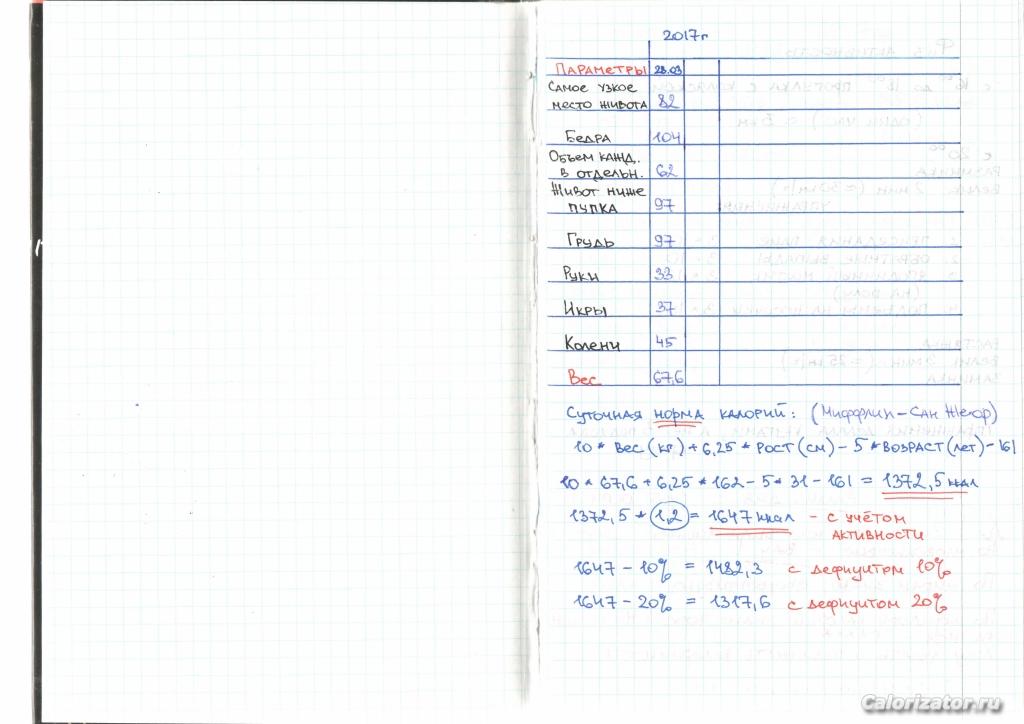 2017г
Параметры 28.03
Самое узкое
место живота 82
Бедра 104
Объем кажд.
в отдельн. 62
Живот ниже
пупка 97
Грудь 97
Руки 33
Икры 37
Колени 45
Вес 67,6
Суточная норма калорий: (Миффлин-Сан Жеор)
10 * вес (кг) + 6,25 * рост (см) - 5 * возраст (лет) - 161
10 * 67,6 + 6,25 * 162 - 5 * 31 - 161 = 1372,5 ккал
1372,5 * 1,2 = 1647 ккал - с учётом
активности
1647 - 10% = 1482,3 с дефицитом 10%
1647 - 20% = 1317,6 с дефицитом 20%
Calorizator.ru